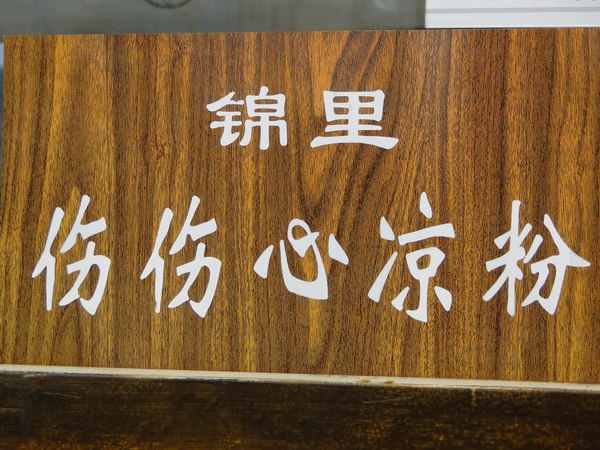 锦里
伤伤心凉粉